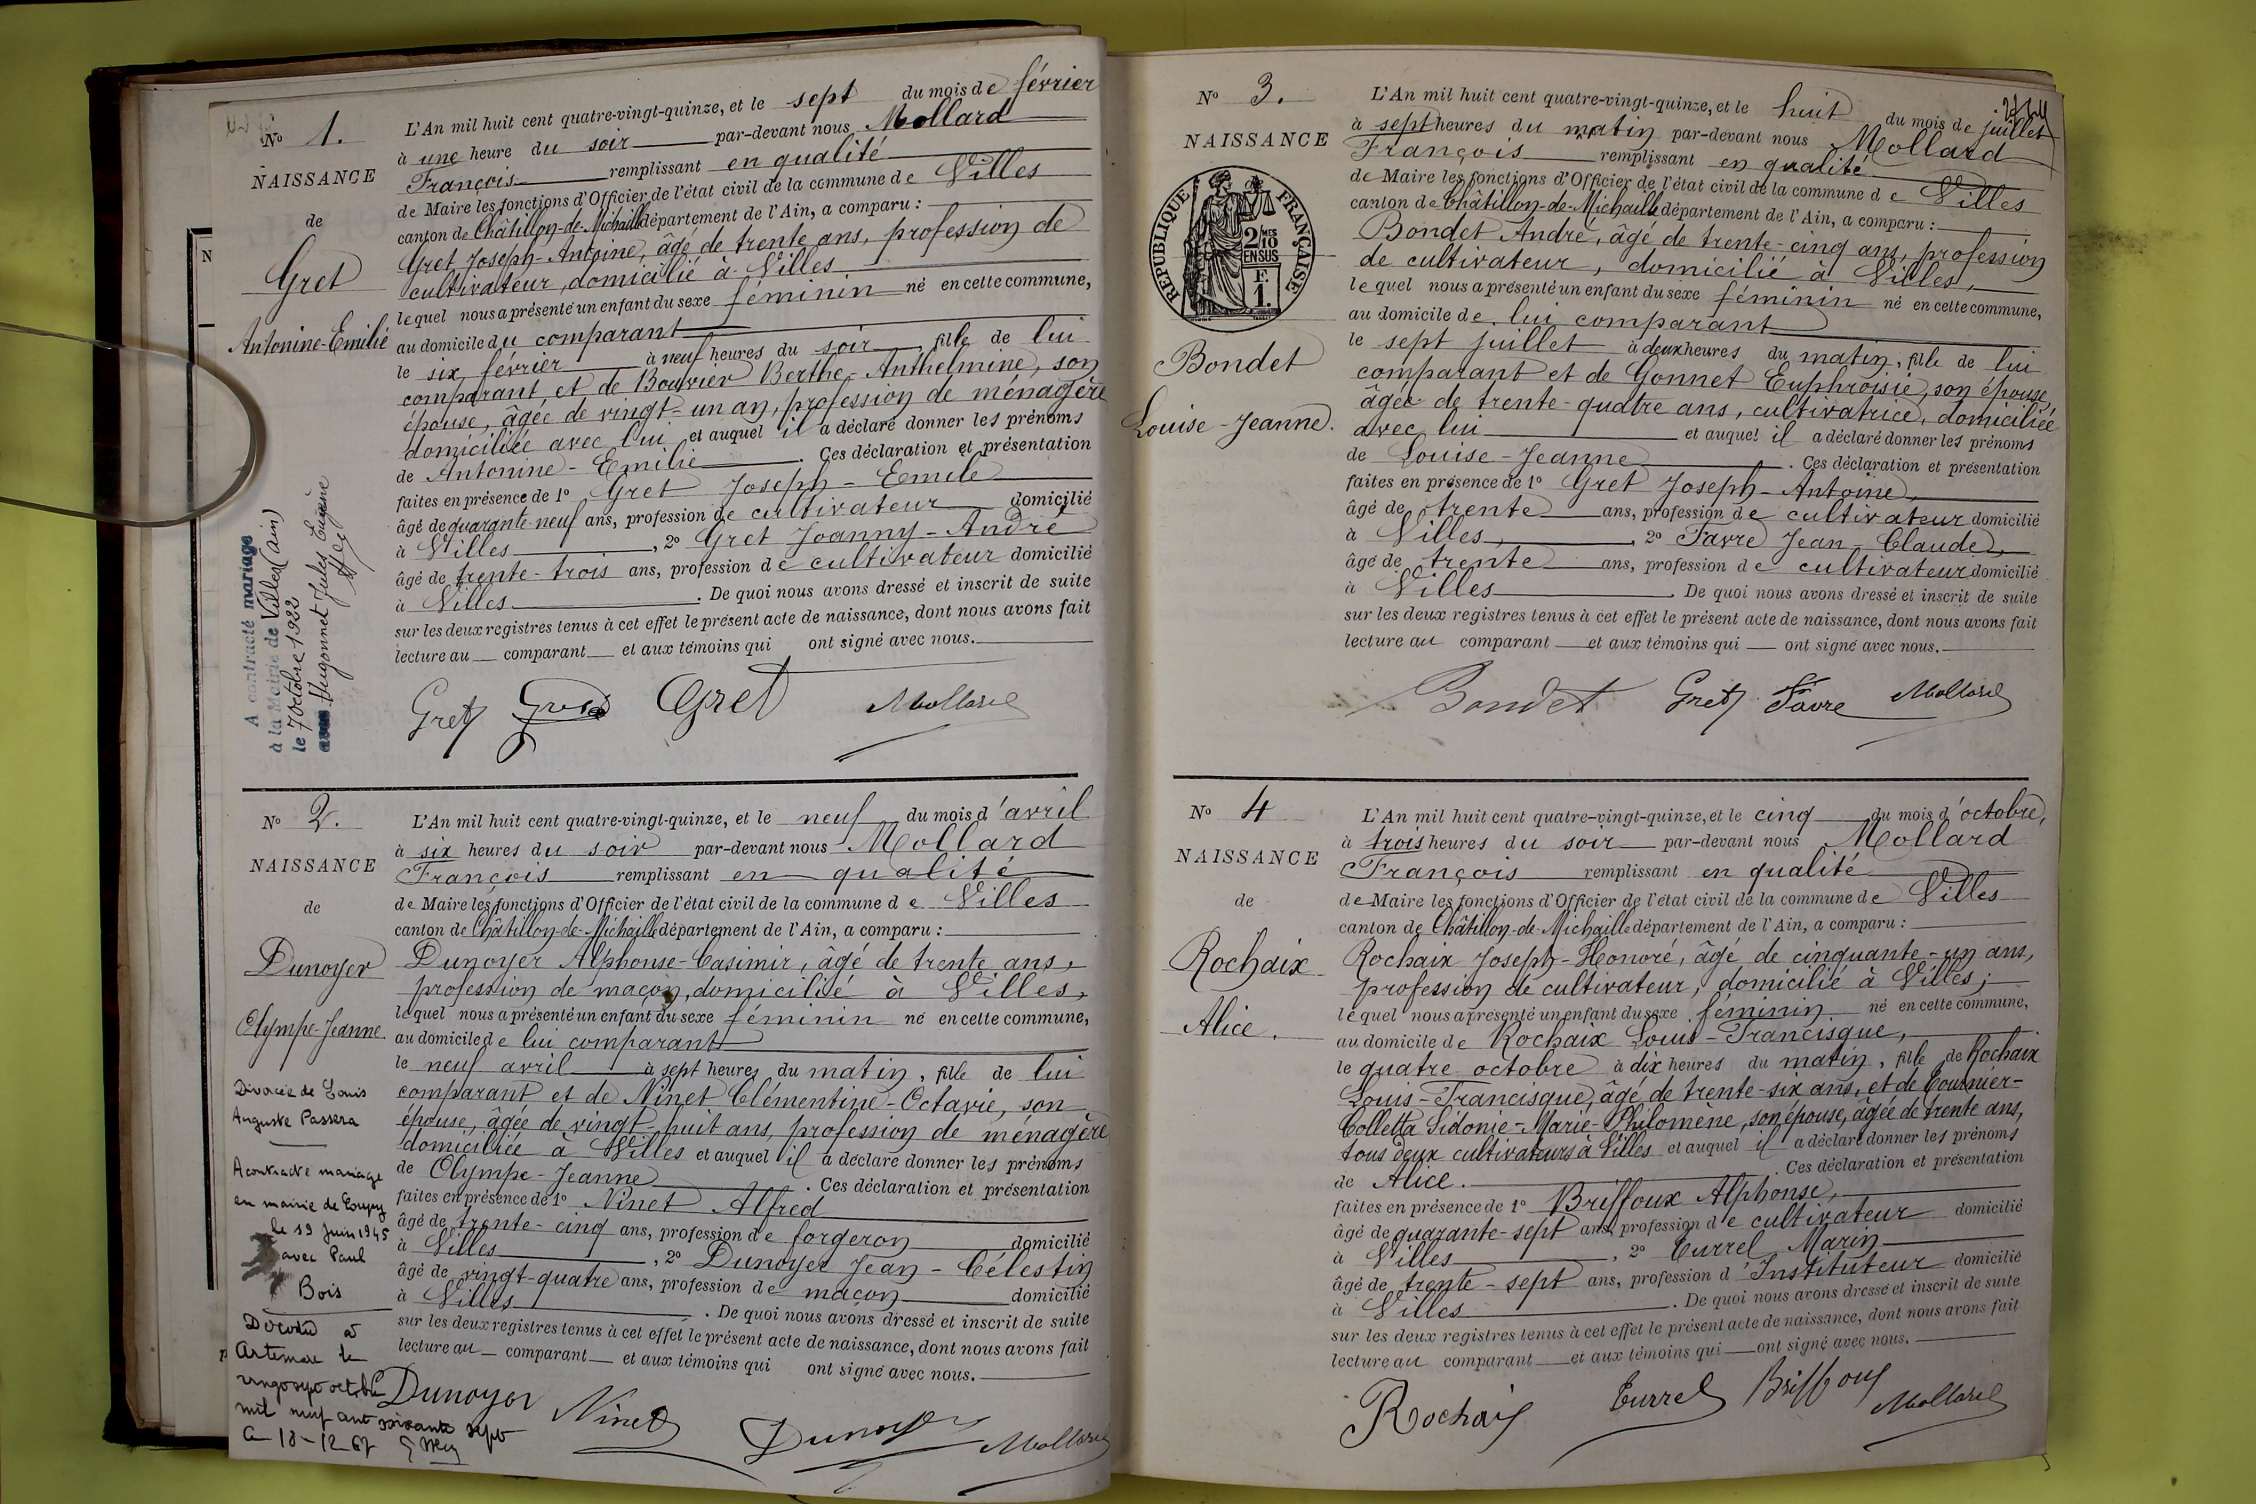 N° 1.
NAISSANCE
de
Gret
Antonine-Emilie
A contracté mariage
à la Mairie de Villes (ain)
le 7 Octobre 1922
avec Hugonnet Jules Eugène
L'An mil huit cent quatre-vingt-quinze, et le sept du mois de février
à une heure du soir par-devant nous Mollard
François remplissant en qualité
de Maire les fonctions d'Officier de l'état civil de la commune de Villes
canton de Châtillon-de-Michaille département de l'Ain, a comparu :
Gret Joseph-Antoine, âgé de trente ans, profession de
cultivateur, domicilié à Villes
lequel nous a présenté un enfant du sexe féminin né en cette commune,
au domicile du comparant
le six février à neuf heures du soir, fille de lui
comparant et de Bouvier Berthe-Anthelmine, son
épouse, âgée de vingt-un an, profession de ménagère
domiciliée avec lui et auquel il a déclaré donner les prénoms
de Antonine-Emilie. Ces déclaration et présentation
faites en présence de 1° Gret Joseph-Emile
âgé de quarante-neuf ans, profession de cultivateur domicilié
à Villes, 2° Gret Joanny-André
âgé de trente-trois ans, profession de cultivateur domicilié
à Villes. De quoi nous avons dressé et inscrit de suite
sur les deux registres tenus à cet effet le présent acte de naissance, dont nous avons fait
lecture au comparant et aux témoins qui ont signé avec nous.
Gret Gret Gret Mollard
N° 2.
NAISSANCE
de
Dunoyer
Olympe-Jeanne
Divorcée de Louis
Auguste Passera
A contracté mariage
en mairie de
le 19 Juin 1945
avec Paul
Bois
Décédée à
Artemare le
vingt sept octobre
mil neuf cent soixante sept
18-12-67
L'An mil huit cent quatre-vingt-quinze, et le neuf du mois d'avril
à six heures du soir par-devant nous Mollard
François remplissant en qualité
de Maire les fonctions d'Officier de l'état civil de la commune de Villes
canton de Châtillon-de-Michaille département de l'Ain, a comparu :
Dunoyer Alphonse-Casimir, âgé de trente ans,
profession de maçon, domicilié à Villes,
lequel nous a présenté un enfant du sexe féminin né en cette commune,
au domicile de lui comparant
le neuf avril à sept heures du matin, fille de lui
comparant et de Ninet Clémentine-Octavie, son
épouse, âgée de vingt-huit ans, profession de ménagère
domiciliée à Villes et auquel il a déclaré donner les prénoms
de Olympe-Jeanne. Ces déclaration et présentation
faites en présence de 1° Ninet Alfred
âgé de trente-cinq ans, profession de forgeron domicilié
à Villes, 2° Dunoyer Jean-Célestin
âgé de vingt-quatre ans, profession de maçon domicilié
à Villes. De quoi nous avons dressé et inscrit de suite
sur les deux registres tenus à cet effet le présent acte de naissance, dont nous avons fait
lecture au comparant et aux témoins qui ont signé avec nous.
Dunoyer Ninet Dunoyer Mollard
N° 3.
NAISSANCE
RÉPUBLIQUE FRANÇAISE
2/10MES
EN SUS
F.
1.
Bondet
Louise-Jeanne.
L'An mil huit cent quatre-vingt-quinze, et le huit du mois de juillet
à sept heures du matin par-devant nous Mollard
François remplissant en qualité
de Maire les fonctions d'Officier de l'état civil de la commune de Villes
canton de Châtillon-de-Michaille département de l'Ain, a comparu :
Bondet André, âgé de trente-cinq ans, profession
de cultivateur, domicilié à Villes,
lequel nous a présenté un enfant du sexe féminin né en cette commune,
au domicile de lui comparant
le sept juillet à deux heures du matin, fille de lui
comparant et de Gonnet Euphroisie, son épouse,
âgée de trente-quatre ans, cultivatrice, domiciliée
avec lui et auquel il a déclaré donner les prénoms
de Louise-Jeanne. Ces déclaration et présentation
faites en présence de 1° Gret Joseph-Antoine,
âgé de trente ans, profession de cultivateur domicilié
à Villes, 2° Favre Jean-Claude,
âgé de trente ans, profession de cultivateur domicilié
à Villes. De quoi nous avons dressé et inscrit de suite
sur les deux registres tenus à cet effet le présent acte de naissance, dont nous avons fait
lecture au comparant et aux témoins qui ont signé avec nous.
Bondet Gret Favre Mollard
N° 4
NAISSANCE
de
Rochaix
Alice.
L'An mil huit cent quatre-vingt-quinze, et le cinq du mois d'octobre,
à trois heures du soir par-devant nous Mollard
François remplissant en qualité
de Maire les fonctions d'Officier de l'état civil de la commune de Villes
canton de Châtillon-de-Michaille département de l'Ain, a comparu :
Rochaix Joseph-Honoré, âgé de cinquante-un ans,
profession de cultivateur, domicilié à Villes;
lequel nous a présenté un enfant du sexe féminin né en cette commune,
au domicile de Rochaix Louis-Francisque,
le quatre octobre à dix heures du matin, fille de Rochaix
Louis-Francisque, âgé de trente-six ans, et de Tournier-
Colletta Sidonie-Marie-Philomène, son épouse, âgée de trente ans,
tous deux cultivateurs à Villes et auquel il a déclaré donner les prénoms
de Alice. Ces déclaration et présentation
faites en présence de 1° Briffoux Alphonse,
âgé de quarante-sept ans, profession de cultivateur domicilié
à Villes, 2° Turrel Marin
âgé de trente-sept ans, profession d'Instituteur domicilié
à Villes. De quoi nous avons dressé et inscrit de suite
sur les deux registres tenus à cet effet le présent acte de naissance, dont nous avons fait
lecture au comparant et aux témoins qui ont signé avec nous.
Rochaix Turrel Briffoux Mollard